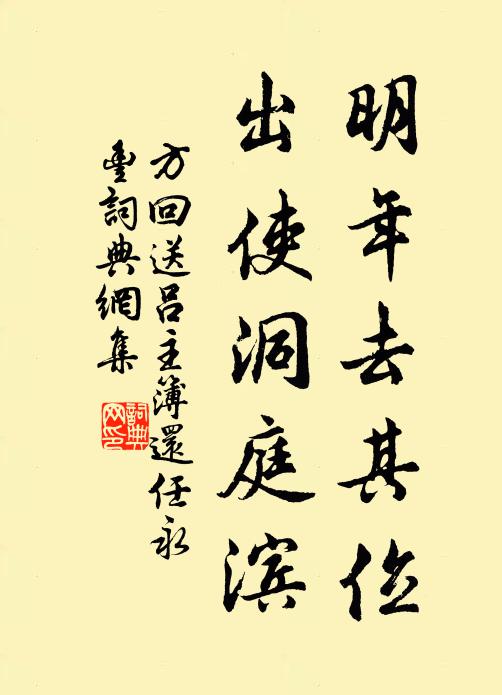 明年去其位
出使洞庭滨
方回送吕主簿還任永
豊詞典網集
詞典
网印